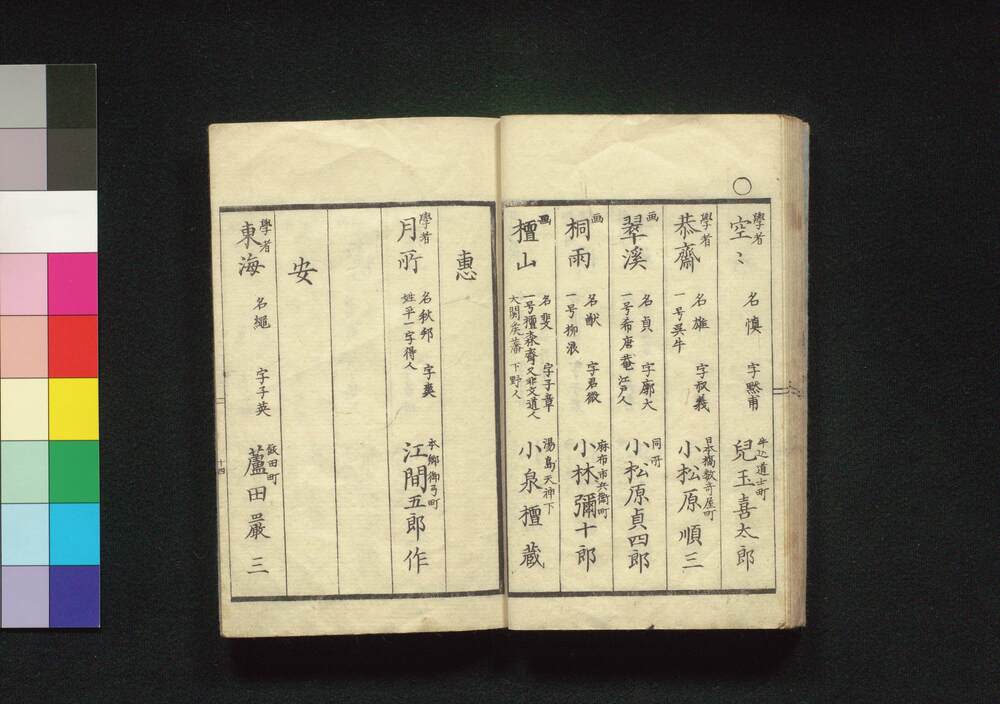 ○
學者
空〻
名 慎 字 黙甫
牛込道士町
兒玉喜太郎
學者
恭齋
名 雄 字 叔義
一号呉牛
日本橋数寄屋町
小松原順三
画
翠溪
名 貞 字 廓大
一号希唐菴 江戸人
同所
小松原貞四郎
画
桐雨
名 猷 字 君徽
一号 柳浪
麻布市兵衛町
小林彌十郎
画
檀山
名 斐 字 子章
一号檀森齋又非文道人
大関矦藩 下野人
湯島天神下
小泉檀藏
惠
學者
月所
名 秋邦 字 爽
姓平一字得人
本郷御弓町
江間五郎作
安
學者
東海
名 繩 字 子英
飯田町
蘆田嚴三
十四